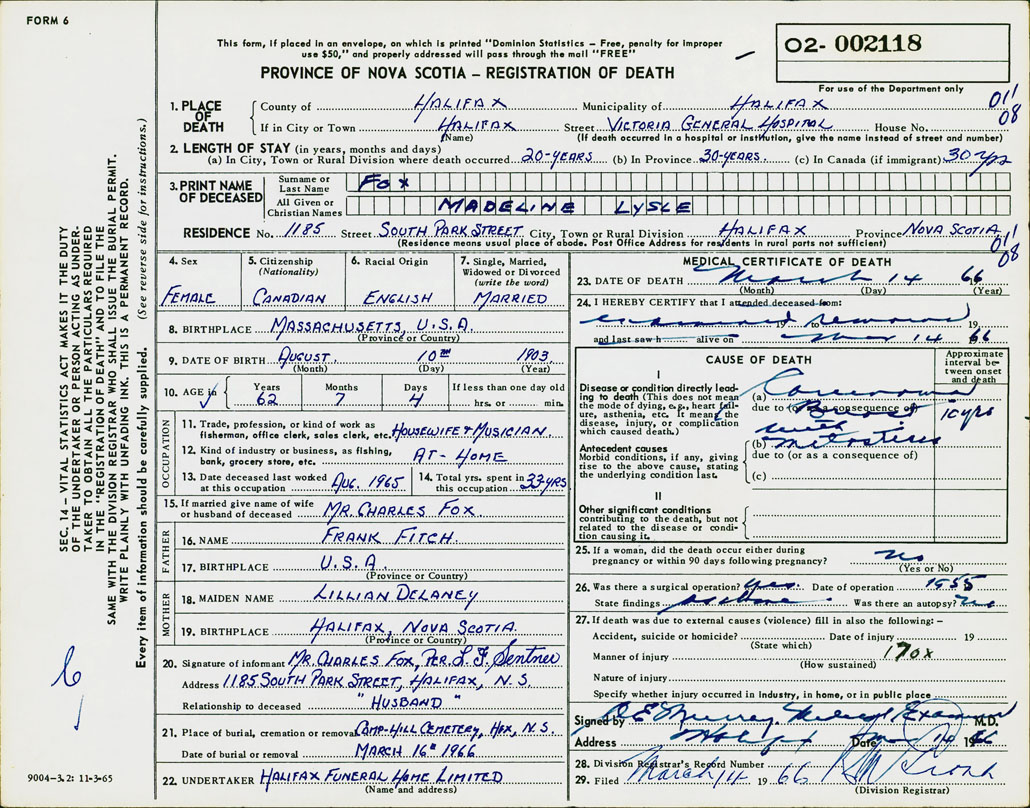 FORM 6
This form, if placed in an envelope, on which is printed "Dominion Statistics – Free, penalty for improper
use $50," and properly addressed will pass through the mail "FREE"
PROVINCE OF NOVA SCOTIA – REGISTRATION OF DEATH
02- 002118
For use of the Department only
SEC. 14 – VITAL STATISTICS ACT MAKES IT THE DUTY
OF THE UNDERTAKER OR PERSON ACTING AS UNDER-
TAKER TO OBTAIN ALL THE PARTICULARS REQUIRED
IN THE "REGISTRATION OF DEATH" AND TO FILE THE
SAME WITH THE DIVISION REGISTRAR WHO SHALL ISSUE THE BURIAL PERMIT.
WRITE PLAINLY WITH UNFADING INK. THIS IS A PERMANENT RECORD.
Every item of information should be carefully supplied. (See reverse side for instructions.)
1. PLACE OF DEATH
County of HALIFAX Municipality of HALIFAX 011 08
If in City or Town HALIFAX Street VICTORIA GENERAL HOSPITAL House No.
(Name) (If death occurred in a hospital or institution, give the name instead of street and number)
2. LENGTH OF STAY (in years, months and days)
(a) In City, Town or Rural Division where death occurred 20-YEARS (b) In Province 30-YEARS. (c) In Canada (if immigrant) 30 yrs
3. PRINT NAME OF DECEASED
Surname or Last Name FOX
All Given or Christian Names MADELINE LYSLE
RESIDENCE No. 1185 Street SOUTH PARK STREET City, Town or Rural Division HALIFAX Province NOVA SCOTIA
(Residence means usual place of abode. Post Office Address for residents in rural parts not sufficient) 011 08
4. Sex FEMALE
5. Citizenship (Nationality) CANADIAN
6. Racial Origin ENGLISH
7. Single, Married, Widowed or Divorced (write the word) MARRIED
8. BIRTHPLACE MASSACHUSETTS, U.S.A.
(Province or Country)
9. DATE OF BIRTH AUGUST 10TH 1903
(Month) (Day) (Year)
10. AGE in Years 62 Months 7 Days 4 If less than one day old hrs. or min.
OCCUPATION
11. Trade, profession, or kind of work as
fisherman, office clerk, sales clerk, etc. HOUSEWIFE & MUSICIAN
12. Kind of industry or business, as fishing,
bank, grocery store, etc. AT-HOME
13. Date deceased last worked at this occupation AUG. 1965
14. Total yrs. spent in this occupation 33-YRS
15. If married give name of wife
or husband of deceased MR. CHARLES FOX.
FATHER
16. NAME FRANK FITCH.
17. BIRTHPLACE U.S.A.
(Province or Country)
MOTHER
18. MAIDEN NAME LILLIAN DELANEY
19. BIRTHPLACE HALIFAX, NOVA SCOTIA.
(Province or Country)
20. Signature of informant MR. CHARLES FOX, PER. L. F. Sentner
Address 1185 SOUTH PARK STREET, HALIFAX, N.S.
Relationship to deceased "HUSBAND"
21. Place of burial, cremation or removal CAMP-HILL CEMETERY, HFX, N.S.
Date of burial or removal MARCH 16TH 1966
22. UNDERTAKER HALIFAX FUNERAL HOME LIMITED
(Name and address)
9004-3.2: 11-3-65
MEDICAL CERTIFICATE OF DEATH
23. DATE OF DEATH March 14 66
(Month) (Day) (Year)
24. I HEREBY CERTIFY that I attended deceased from:
examined 19 to removal 19
and last saw h alive on Mar 14 66
CAUSE OF DEATH
Approximate interval between onset and death
I
Disease or condition directly leading to death (This does not mean the mode of dying, e.g., heart failure, asthenia, etc. It means the disease, injury, or complication which caused death.)
(a) Carcinoma
due to (or as a consequence of) Breast 10 yrs
(b) with metastases
Antecedent causes
Morbid conditions, if any, giving rise to the above cause, stating the underlying condition last.
due to (or as a consequence of)
(c)
II
Other significant conditions
contributing to the death, but not related to the disease or condition causing it.
25. If a woman, did the death occur either during
pregnancy or within 90 days following pregnancy? no
(Yes or No)
26. Was there a surgical operation? yes. Date of operation 1955
State findings as above Was there an autopsy? no
27. If death was due to external causes (violence) fill in also the following: –
Accident, suicide or homicide? Date of injury 19
(State which)
Manner of injury 170X
(How sustained)
Nature of injury
Specify whether injury occurred in industry, in home, or in public place
Signed by E. Murray. Medical Examiner M.D.
Address Halifax Date Mar 14 1966
28. Division Registrar's Record Number
29. Filed March 14 1966
(Division Registrar)